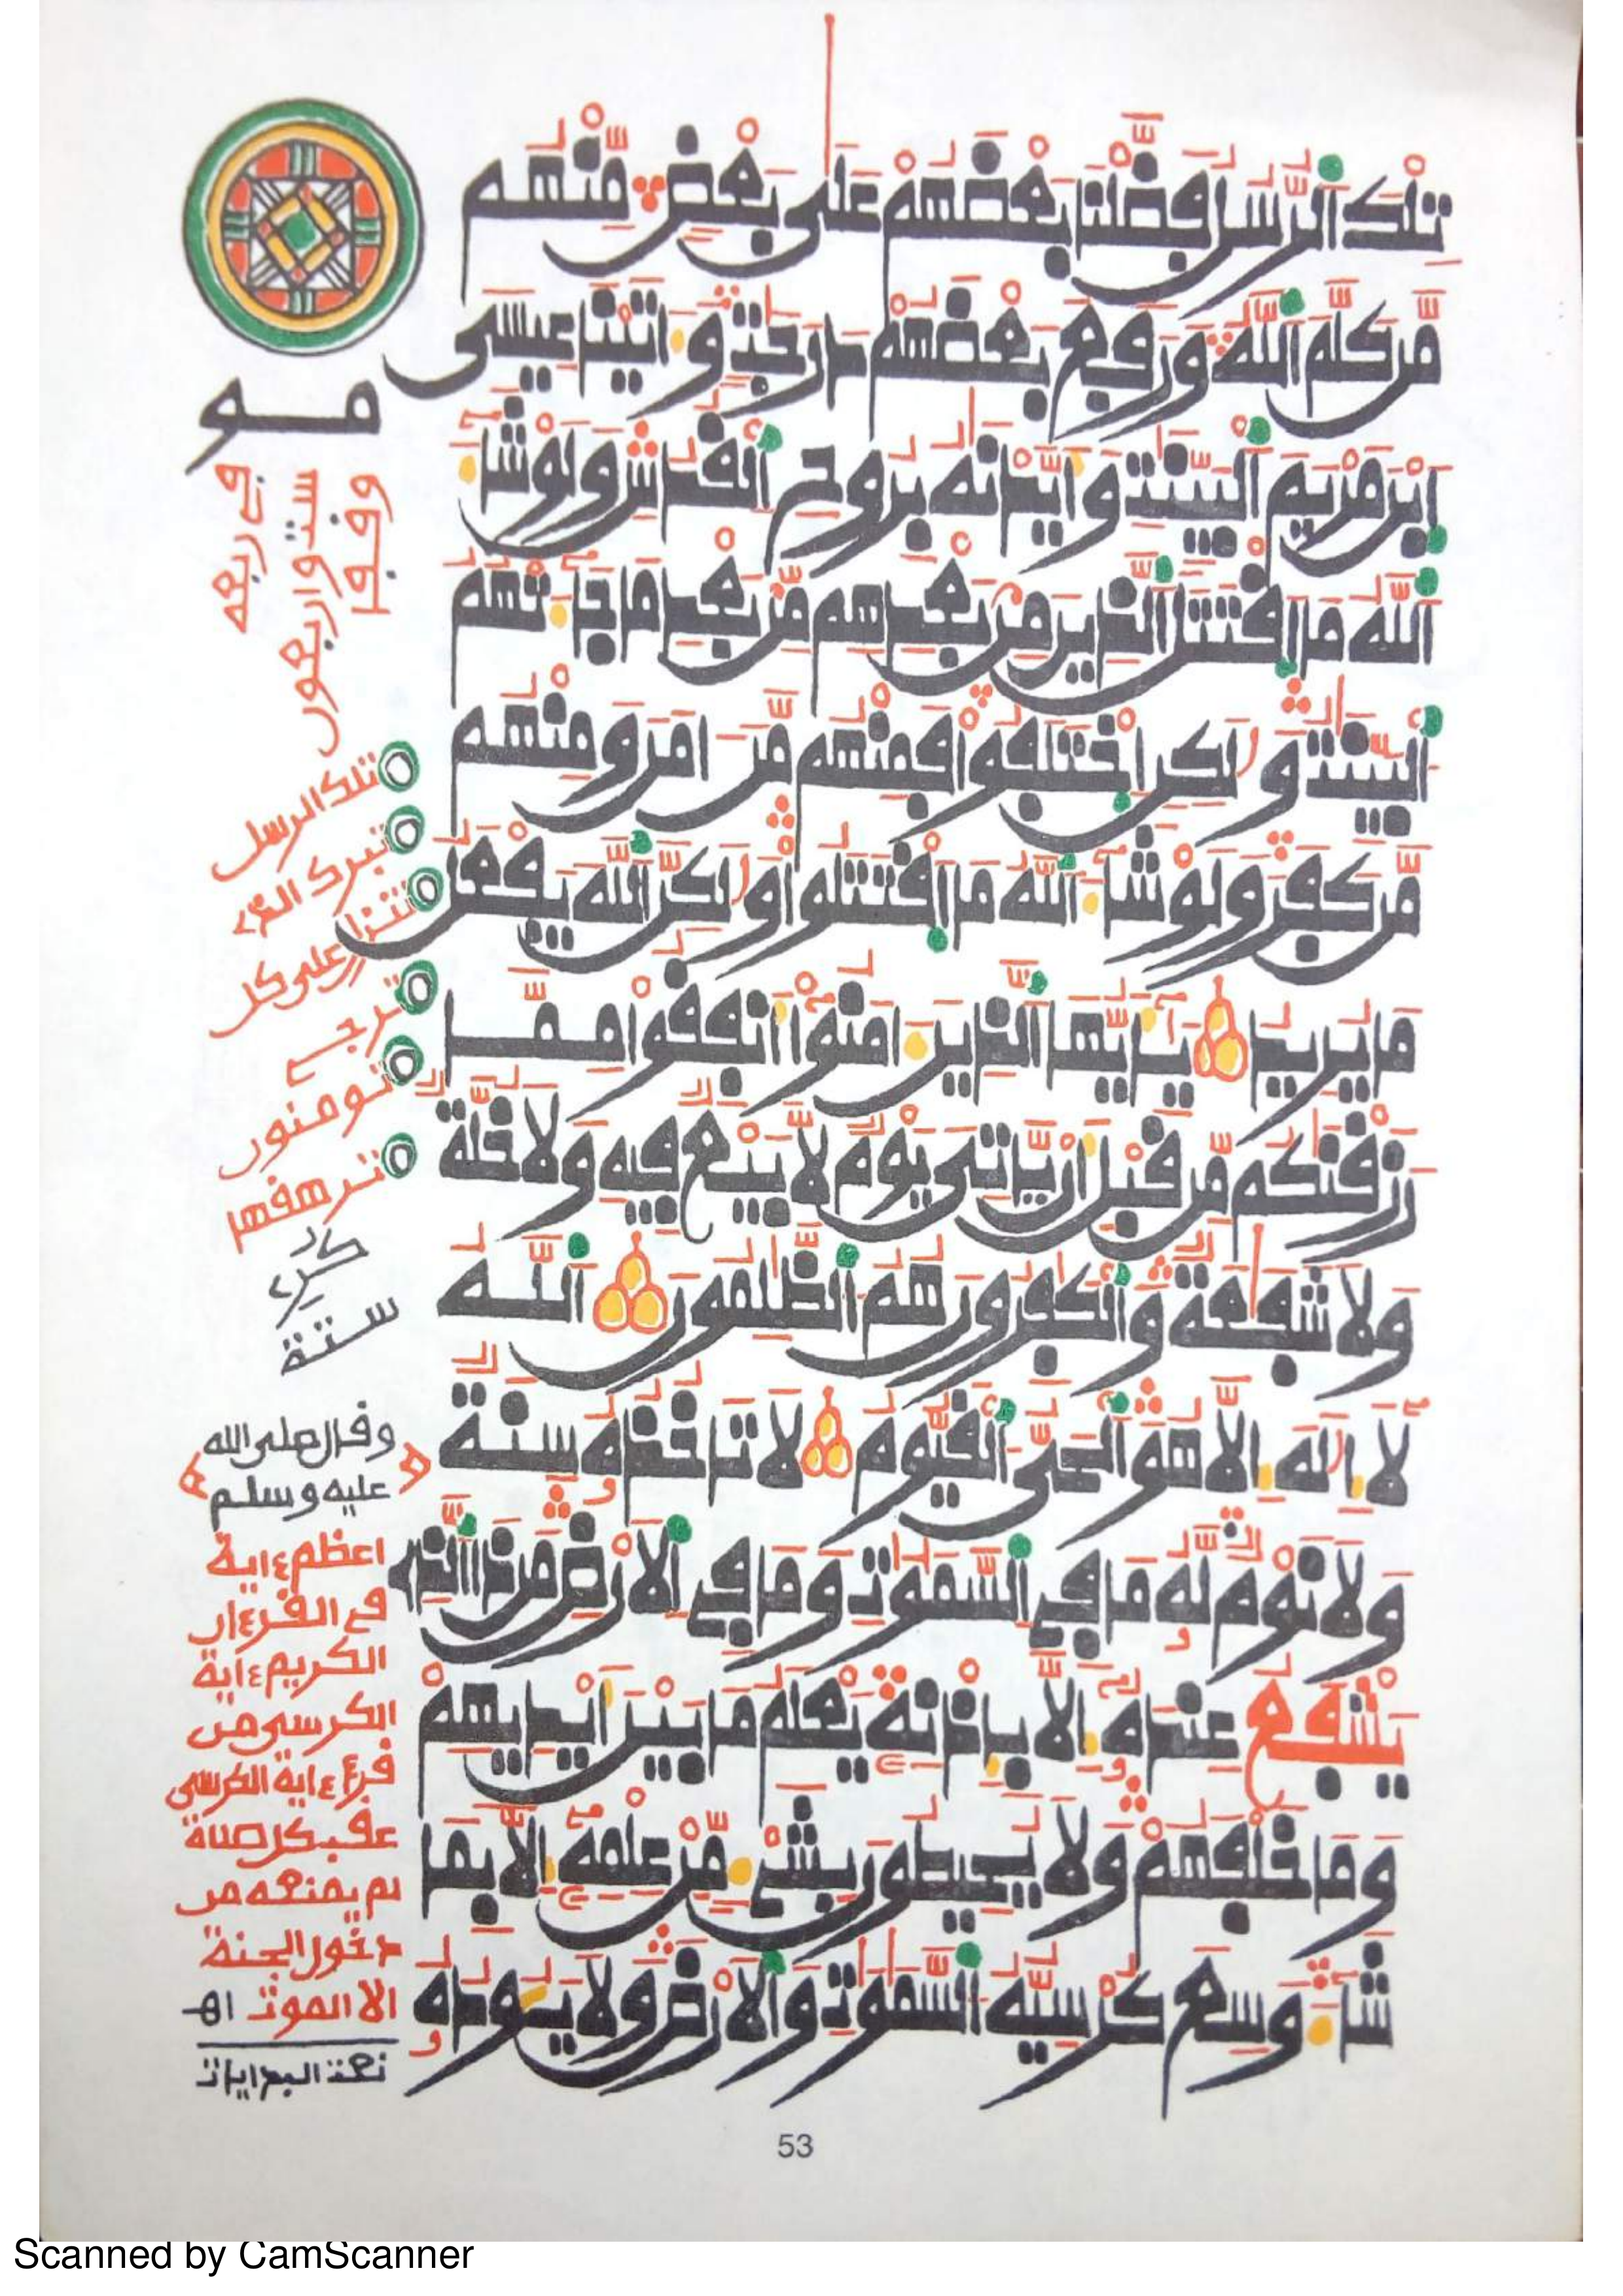 تلك الرسل فضلنا بعضهم على بعض منهم
من كلم الله ورفع بعضهم درجت و اتينا عيسى
ابن مريم البينت و ايدنه بروح القدس ولو شا
الله ما اقتتل الذين من بعدهم من بعد ما جا تهم
البينت و لكن اختلفوا فمنهم من امن ومنهم
من كفر ولو شا الله ما اقتتلوا و لكن الله يفعل
ما يريد يايها الذين امنوا انفقوا مما
رزقنكم من قبل ان ياتي يوم لا بيع فيه ولا خلة
ولا شفعة والكفرون هم الظلمون الله
لا اله الا هو الحي القيوم لا تاخذه سنة
ولا نوم له ما في السموت وما في الارض من ذا الذي
يشفع عنده الا باذنه يعلم ما بين ايديهم
وما خلفهم ولا يحيطون بشي من علمه الا بما
شا وسع كرسيه السموت والارض ولا يوده
مو
وقفا
ستة واربعون
في ربعه
تلك الرسل
تبرك الذي
تنزل على كل
ترجي
تومنون
ترهقها
ستة
وقال صلى الله
عليه وسلم
اعظم ءاية
في القرءان
الكريم ءاية
الكرسي من
قرء ءاية الكرسي
عقب كل صلاة
لم يمنعه من
دخول الجنة
الا الموت اه
53
Scanned by CamScanner